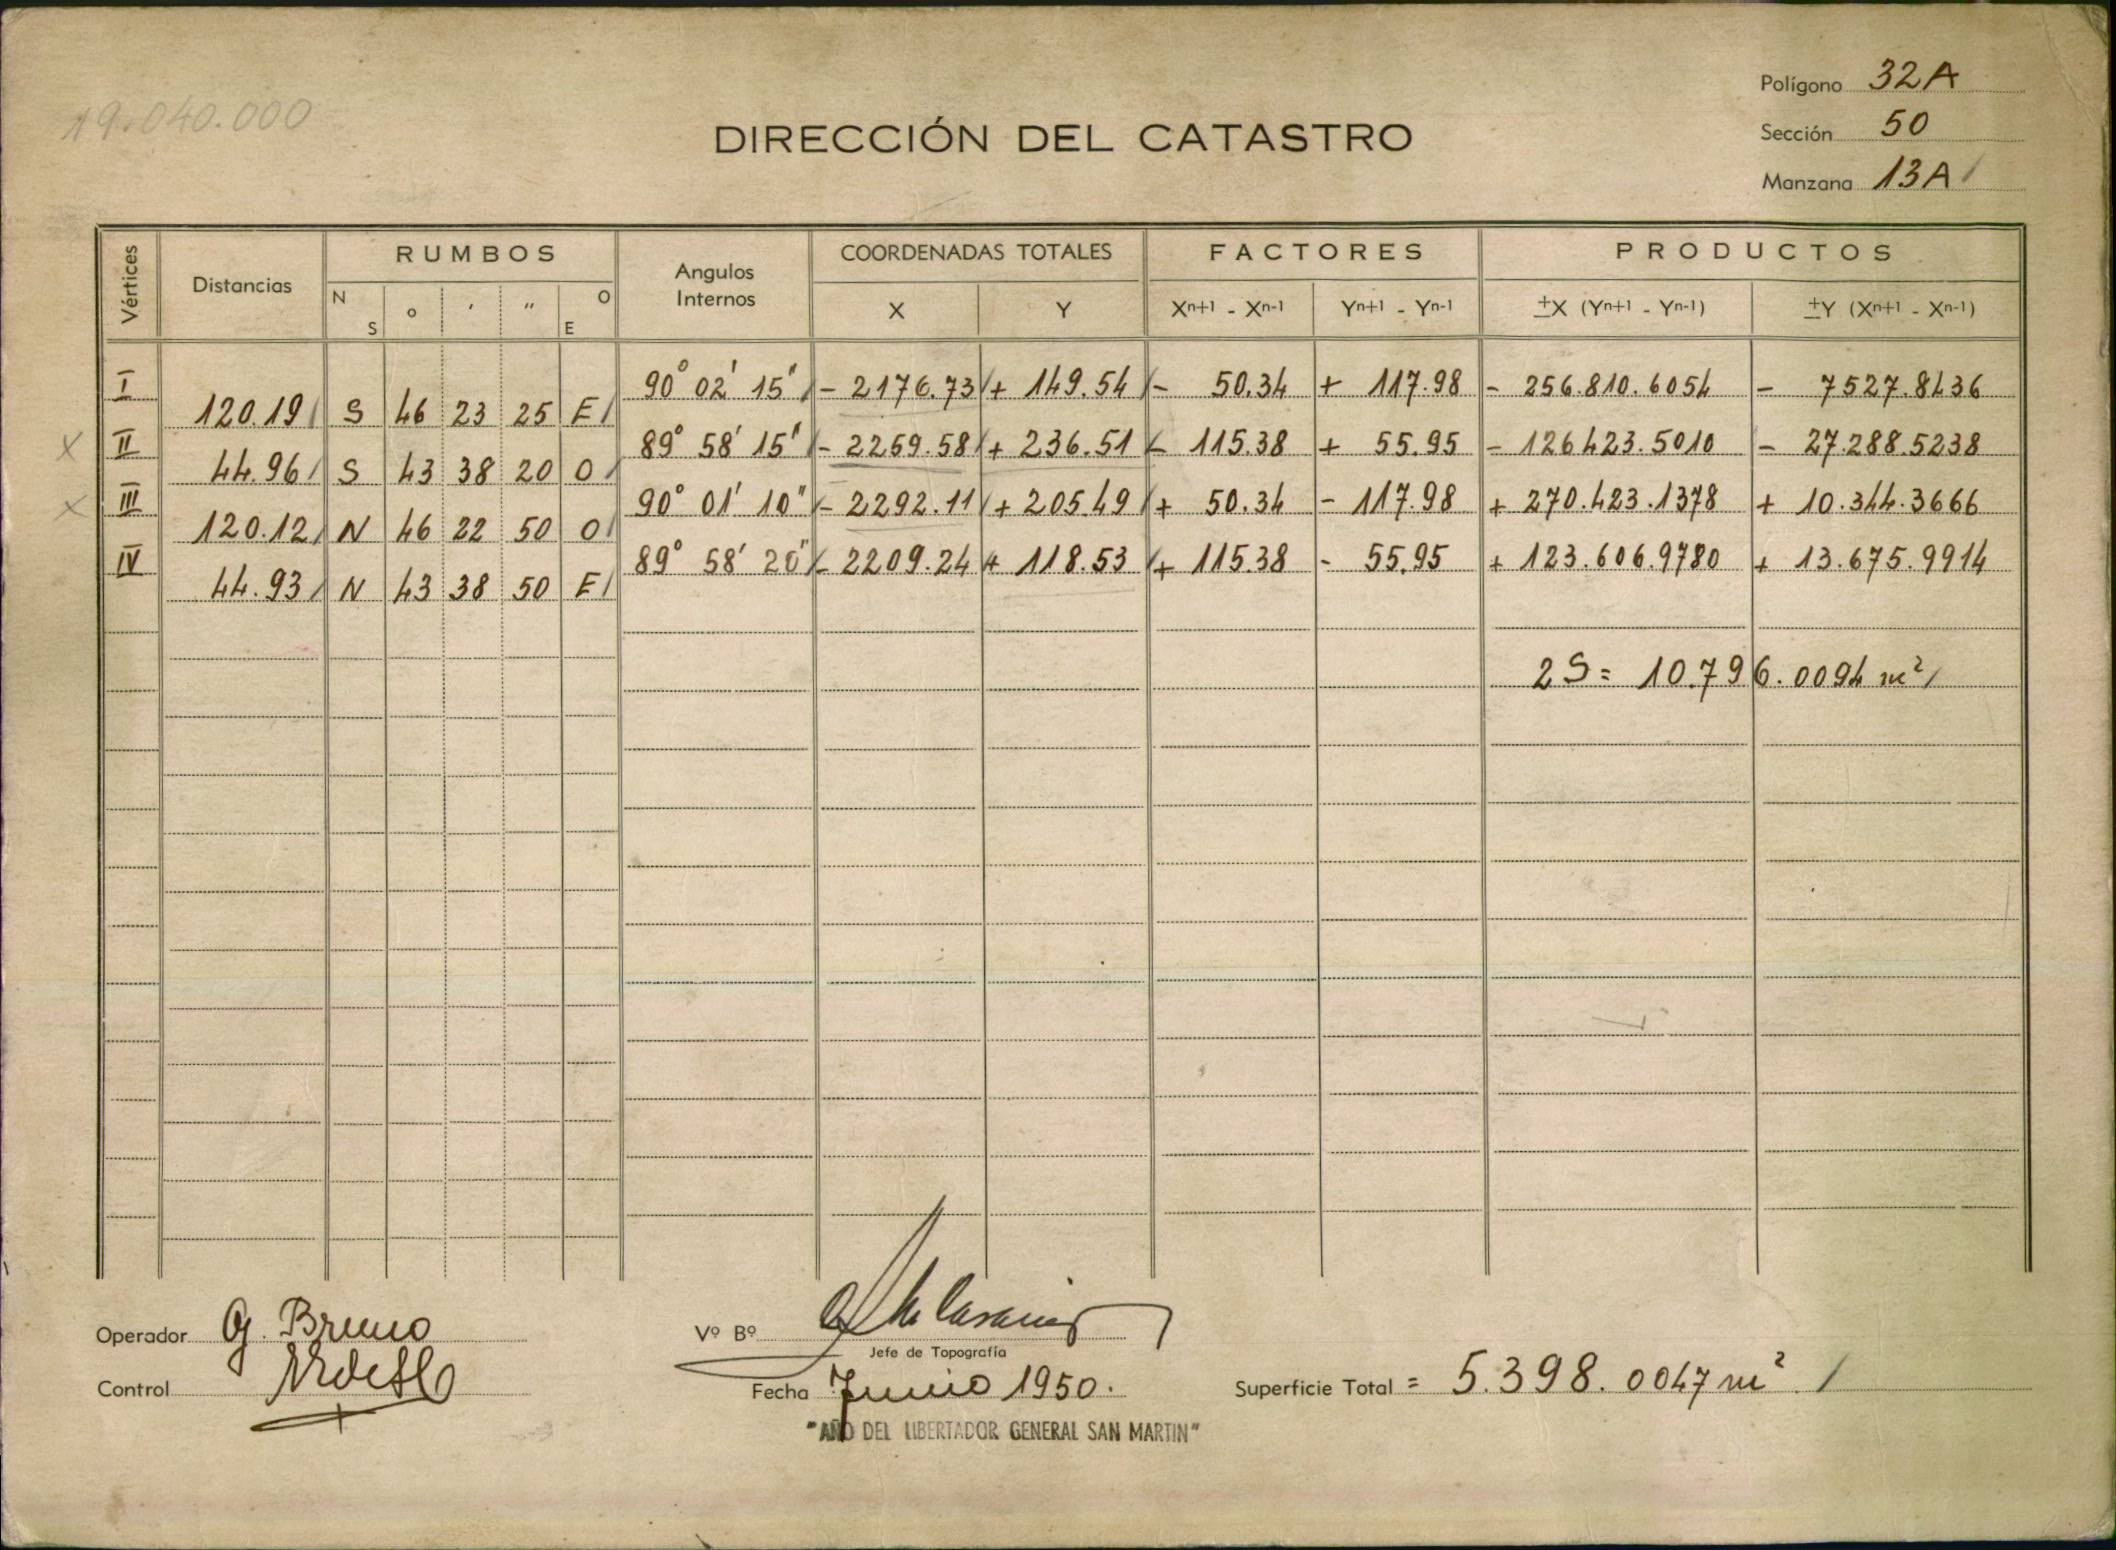 19.040.000
Polígono 32A
Sección 50
Manzana 13A
DIRECCIÓN DEL CATASTRO
Vértices Distancias RUMBOS Angulos Internos COORDENADAS TOTALES FACTORES PRODUCTOS
N S ° ' " O E X Y Xn+1 - Xn-1 Yn+1 - Yn-1 ±X (Yn+1 - Yn-1) ±Y (Xn+1 - Xn-1)
I 90° 02' 15" - 2176.73 + 149.54 - 50.34 + 117.98 - 256.810.6054 - 7527.8436
120.19 S 46 23 25 E
X II 89° 58' 15" - 2259.58 + 236.51 - 115.38 + 55.95 - 126423.5010 - 27.288.5238
44.96 S 43 38 20 O
X III 90° 01' 10" - 2292.11 + 205.49 + 50.34 - 117.98 + 270.423.1378 + 10.344.3666
120.12 N 46 22 50 O
IV 89° 58' 20" - 2209.24 + 118.53 + 115.38 - 55.95 + 123.606.9780 + 13.675.9914
44.93 N 43 38 50 E
2S = 10.796.0094 m²
Operador G. Bruno
Vº Bº
Jefe de Topografía
Control
Fecha Junio 1950.
Superficie Total = 5.398.0047 m²
"AÑO DEL LIBERTADOR GENERAL SAN MARTIN"